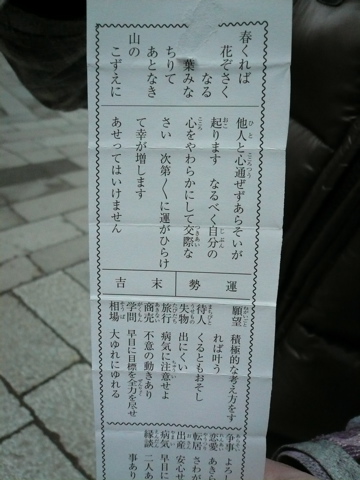 春くれば
花ぞさく
なる
葉みな
ちりて
あとなき
山の
こずえに
他人と心通ぜずあらそいが
起ります なるべく自分の
心をやわらかにして交際な
さい 次第〱に運がひらけ
て幸が増します
あせってはいけません
運勢
末吉
願望 積極的な考え方をす
れば叶う
待人 くるともおそし
失物 出にくい
旅行 病気に注意せよ
商売 不意の動きあり
学問 早目に目標を全力を尽せ
相場 大ゆれにゆれる
争事 よろし
恋愛 あきら
転居 さわが
出産 安心せ
病気 早目に
縁談 二人あ
事あり